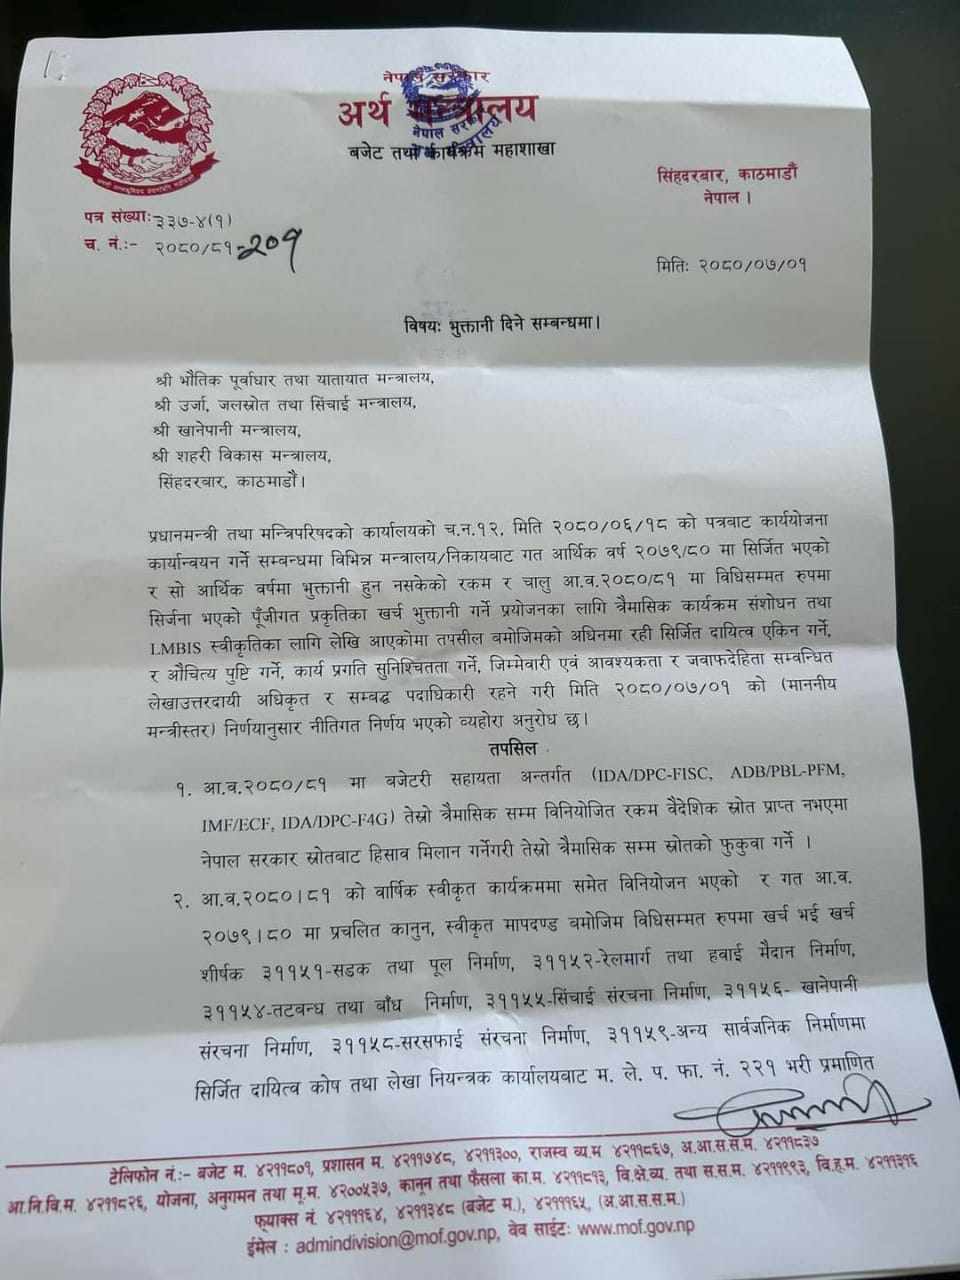 नेपाल सरकार
अर्थ मन्त्रालय
बजेट तथा कार्यक्रम महाशाखा
नेपाल सरकार
सिंहदरबार, काठमाडौं
नेपाल ।
पत्र संख्याः ३३७-४(१)
च. नं.:- २०८०/८१-209
मितिः २०८०/०७/०१
विषयः भुक्तानी दिने सम्बन्धमा।
श्री भौतिक पूर्वाधार तथा यातायात मन्त्रालय,
श्री उर्जा, जलस्रोत तथा सिंचाई मन्त्रालय,
श्री खानेपानी मन्त्रालय,
श्री शहरी विकास मन्त्रालय,
सिंहदरवार, काठमाडौं।
प्रधानमन्त्री तथा मन्त्रिपरिषदको कार्यालयको च.न.१२, मिति २०८०/०६/१८ को पत्रबाट कार्ययोजना
कार्यान्वयन गर्ने सम्बन्धमा विभिन्न मन्त्रालय/निकायवाट गत आर्थिक वर्ष २०७९/८० मा सिर्जित भएको
र सो आर्थिक वर्षमा भुक्तानी हुन नसकेको रकम र चालु आ.व.२०८०/८१ मा विधिसम्मत रुपमा
सिर्जना भएको पूँजीगत प्रकृतिका खर्च भुक्तानी गर्ने प्रयोजनका लागि त्रैमासिक कार्यक्रम संशोधन तथा
LMBIS स्वीकृतिका लागि लेखि आएकोमा तपसील बमोजिमको अधिनमा रही सिर्जित दायित्व एकिन गर्ने,
र औचित्य पुष्टि गर्ने, कार्य प्रगति सुनिश्चितता गर्ने, जिम्मेवारी एवं आवश्यकता र जवाफदेहिता सम्वन्धित
लेखाउत्तरदायी अधिकृत र सम्बद्ध पदाधिकारी रहने गरी मिति २०८०/०७/०१ को (माननीय
मन्त्रीस्तर) निर्णयानुसार नीतिगत निर्णय भएको व्यहोरा अनुरोध छ।
तपसिल
१. आ.व.२०८०/८१ मा बजेटरी सहायता अन्तर्गत (IDA/DPC-FISC, ADB/PBL-PFM,
IMF/ECF, IDA/DPC-F4G) तेस्रो त्रैमासिक सम्म विनियोजित रकम वैदेशिक स्रोत प्राप्त नभएमा
नेपाल सरकार स्रोतबाट हिसाव मिलान गर्नेगरी तेस्रो त्रैमासिक सम्म स्रोतको फुकुवा गर्ने ।
२. आ.व.२०८०।८१ को वार्षिक स्वीकृत कार्यक्रममा समेत विनियोजन भएको र गत आ.व.
२०७९।८० मा प्रचलित कानुन, स्वीकृत मापदण्ड बमोजिम विधिसम्मत रुपमा खर्च भई खर्च
शीर्षक ३११५१-सडक तथा पूल निर्माण, ३११५२-रेलमार्ग तथा हवाई मैदान निर्माण,
३११५४-तटबन्ध तथा बाँध निर्माण, ३११५५-सिंचाई संरचना निर्माण, ३११५६- खानेपानी
संरचना निर्माण, ३११५८-सरसफाई संरचना निर्माण, ३११५९-अन्य सार्वजनिक निर्माणमा
सिर्जित दायित्व कोष तथा लेखा नियन्त्रक कार्यालयवाट म. ले. प. फा. नं. २२१ भरी प्रमाणित
टेलिफोन नं.:- बजेट म. ४२११८०१, प्रशासन म. ४२११७४८, ४२११३००, राजस्व व्य.म ४२११८६७, अ.आ.स.स.म. ४२११८३७
आ.नि.वि.म. ४२११८२६, योजना, अनुगमन तथा मू.म. ४२००५३७, कानून तथा फैसला का.म. ४२११८१३, वि.क्षे.व्य. तथा स.स.म. ४२११९९३, वि.ह.म. ४२११३१६
फ्याक्स नं. ४२१११६४, ४२११३४८ (बजेट म.), ४२१११६५, (अ.आ.स.स.म.)
ईमेल : admindivision@mof.gov.np, वेव साईटः www.mof.gov.np